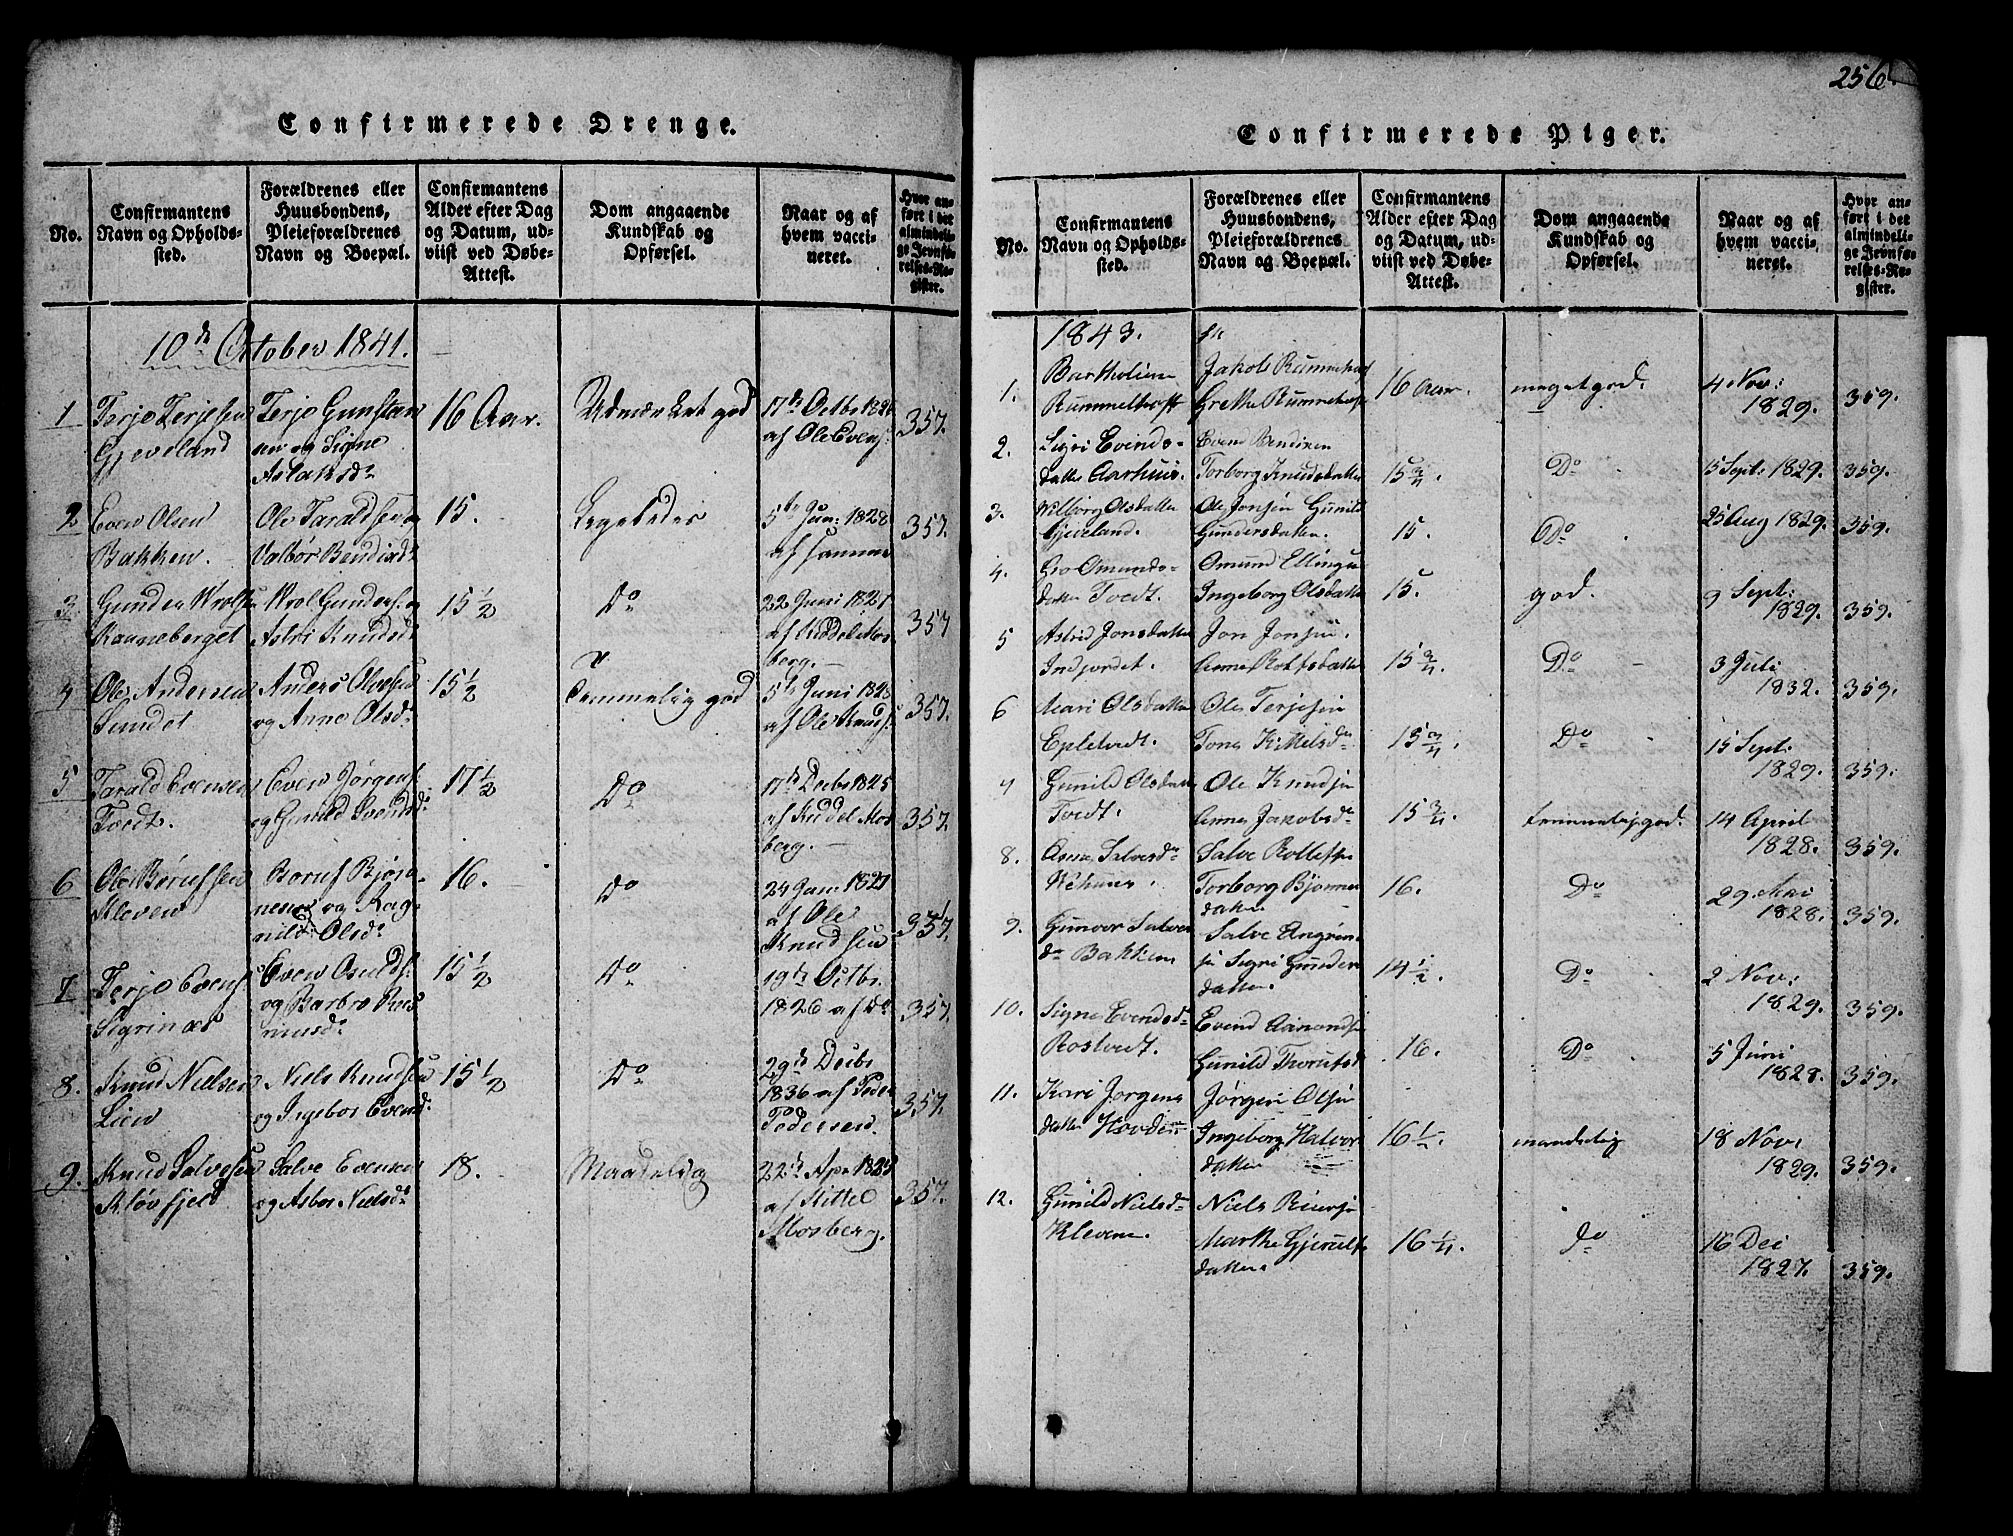 256.
Confirmerede Drenge.
No.
Confirmantens
Navn og Opholds-
sted.
Forældrenes eller
Huusbondens,
Pleieforældrenes
Navn og Boepæl.
Confirmantens
Alder efter Dag
og Datum, ud-
viist ved Døbe-
Attest.
Dom angaaende
Kundskab og
Opførsel.
Naar og af
hvem vacci-
neret.
Hvor an-
ført i det
almindeli-
ge Jevnfø-
relses-Re-
gister.
10de October 1841.
1
Terje Terjesen
Gjeveland
Terje Gunsten
sen og Signe
Aslaksdr
16 Aar.
Udmærket god
17de Octbr 1826
af Ole Evens:
357.
2
Even Olsen
Bakken.
Ole Taraldsen og
15.
Ligeledes
5te Jun: 1828
af samme
357.
3
Gunder Wrolsen
Wrol Gunders: og
Astri Knudsd
15 1/2
Do
22 Juni 1827
berg.
357
4
Ole Andersen
Sundet
Anders Olvesen
og Anne Olsdr
15 1/2
Temmelig god
5te Juni 1828
af Ole Knuds:
357.
5
Tarald Evensen
Tvedt.
Even Jørgens:
og Gunild Svends d:
17 1/2
Do
17de Decbr 1825
berg.
357.
6
Kleven
nesen og Rag-
nild Olsdr
16.
Do
24 Jan: 1827
af Ole
Knudsen
357.
7
Terje Evens:
Sigrinæs
Even Osulds:
og Barbro Ras
musdr
15 1/2
Do
19de Octbr.
1826 af Do
357.
8.
Knud Nielsen
Lien
Niels Knudsen
og Ingebor Evend:
15 1/2
Do
29de Decbr
1836 af Peder
Pedersen.
357.
9.
Knud Salvesen
Kløvfjeld
Salve Evensen
og Asbor Nielsdr
18.
Maadelig
22de Apr: 1825
af Kittel
Mosberg.
357.
Confirmerede Piger.
No.
Confirmantens
Navn og Opholds-
sted.
Forældrenes eller
Huusbondens,
Pleieforældrenes
Navn og Boepæl.
Confirmantens
Alder efter Dag
og Datum, ud-
viist ved Døbe-
Attest.
Dom angaaende
Kundskab og
Opførsel.
Naar og af
hvem vacci-
neret.
Hvor an-
ført i det
almindeli-
ge Jevnfø-
relses-Re-
gister.
1843.
1.
Rummelhoff
Jakob Rummelhof
Grethe Rummelhof
16 Aar.
meget god.
4 Nov:
1829.
359.
2.
Sigri Evinds-
datter Aarhuus.
Torborg Knudsdatter
15 3/4.
Do
15 Sept: 1829.
359.
3.
Wilborg Olsdatter
Gjeveland.
Ole Jonsen Gunild
Gundersdatter.
15.
Do
25 Aug 1829.
359.
4.
Gro Omunds-
datter Tvedt.
Omund Ellings
Ingeborg Olsdatter
15.
god.
9 Sept:
1829.
359.
5
Astrid Jonsdatter
Indjordet.
Jon Jonsen.
Anne Rolfsdatter
15 3/4.
Do
3 Juli
1832.
359.
6
Mari Olsdatter
Epletvedt.
Ole Terjesen
Tone Kittelsdr
15 3/4.
Do
15 Sept:
1829.
359.
7
Gunild Olsdatter
Tvedt.
Ole Knudsen
Anne Jakobsdr
15 3/4.
temmelig god.
14 April
1828.
359.
8.
Salve
Torborg Bjønnes
datter.
16.
Do
29 Mai
1828.
359.
9.
Gunvor Salves
dr Bakken
Salve
Sigri Gunders
datter.
14 1/2.
Do
2 Nov:
1829.
359.
10.
Signe Evendsdr
Rostvedt.
Evend Aamondsen
Gunild
16.
Do
5 Juni
1828.
359.
11.
Kari Jorgens
datter Hovden
Jørgen Olsen
Ingeborg Halvor
datter
maadelig
18 Nov:
1829.
359.
12.
Gunild Nielsdr
Klevene.
Niels
Marthe
datter.
16 1/4.
do
16 Dec
1827.
359.